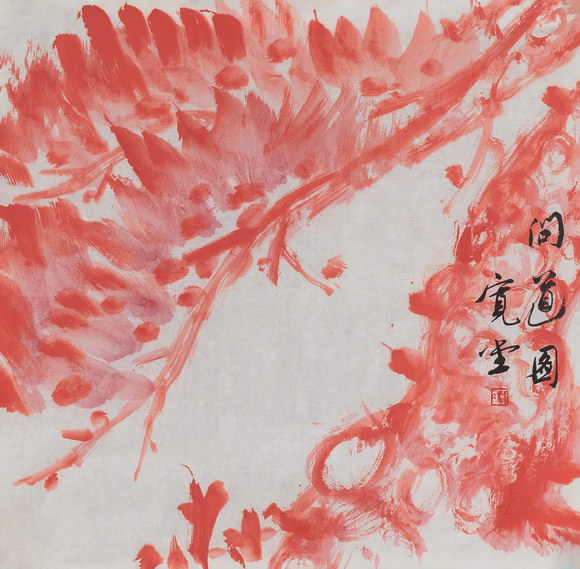 问道图
宽堂